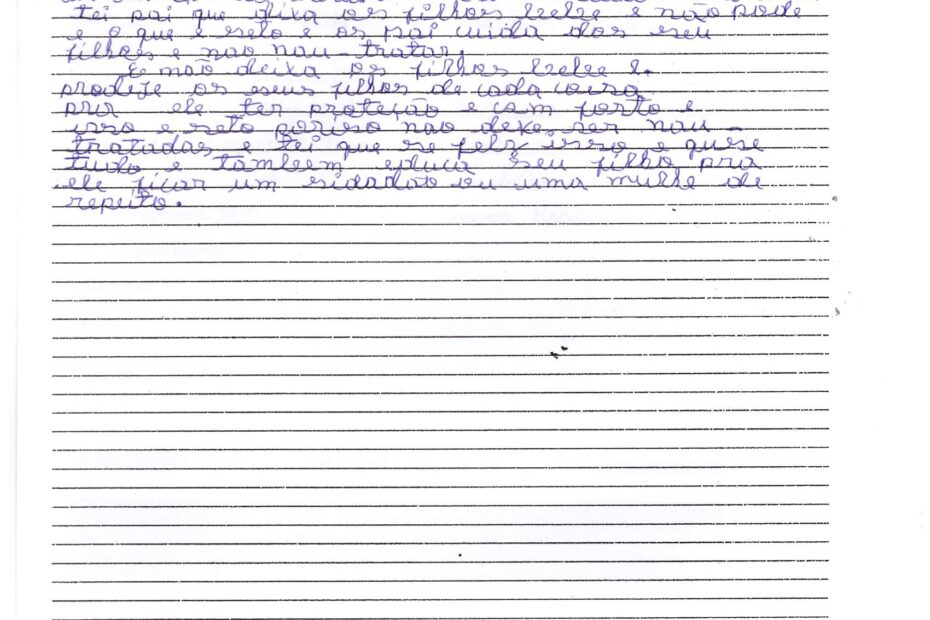 tei pai que dixa os filhos bebe e não pode
e o que e seto e os pai cuida dos seu
filhos e nao nau-tratar.
E não deixa os filhos bebe e.
prodeje os seus filhos de cada coisa
pra ele ter proteção e com forto e
isso e seto poriso nao deve ser nau-
tratadas e tei que se feliz isso e quase
tudo e tambeem educa seu filho pra
ele ficar um sidadao ou uma mulhe de
reputo.